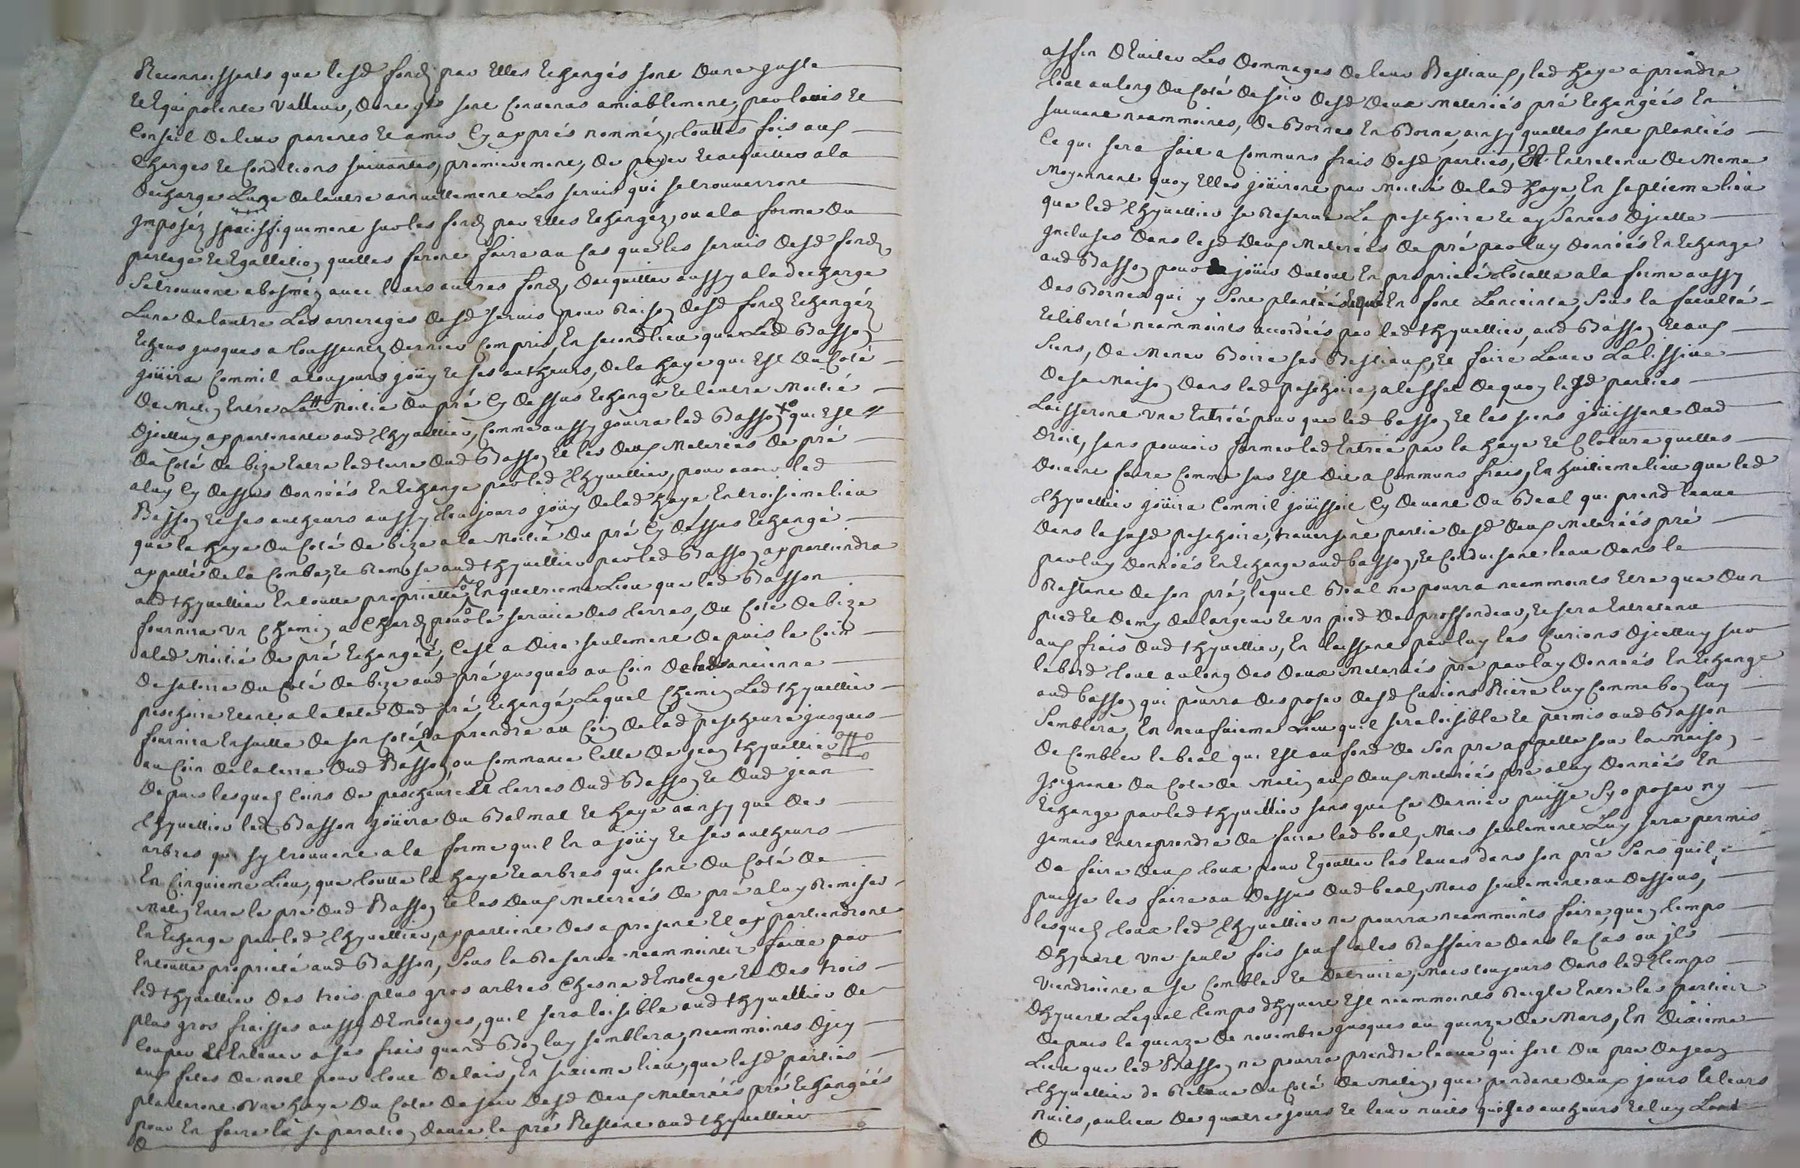 Reconnoissants que lesd fondz par Elles Echangés sont dune juste
Et Equipolente valleur, dont Elles sont Convenus amiablement, par lavis Et
Conseil de leur parents Et amis Cy apprés nommés, touttes fois aux
Charges Et Conditions suivantes, premierement, de payer Et acquitter a la
decharge Lune de lautre annuellement Les servis qui se trouverront
Imposéz speciffiquement sur les fondz par Elles Echangéz, ou a la forme du
partage Et Egallation quelles feront faire au Cas que les servis desd fondz
se trouvent abosméz avec leurs autres fondz, dacquitter aussy a la decharge
Lune de lautre Les arrerages desd servis pour Raison desd fondz Echangéz
Echeus jusques a toussaincts dernier Compris, En second lieu que led Basson
joüira Comm'il a toujours joüy Et ses autheurs, de la haye qui Est du Coté
de Matin Entre La Moitié du pré Cy dessus Echangé Et lautre Moitié
dicelluy appartenante aud thyvellier, Comme aussy jouira led Basson qui Est
du Coté de bize Entre lad terre dud Basson Et les deux Meterées de pré
a luy Cy dessus données En Echange par led thyvellier, pour avoir led
Basson Et ses autheurs aussy toujours joüy de lad haye, En troisieme lieu
que la haye du Coté de bize a la Moitié du pré Cy dessus Echangé
appellé de la Combe, Et Remise aud thyvellier par led Basson appartiendra
aud thyvellier En toutte proprietté, En quatrieme Lieu que led Basson
fournira un Chemin a Chard pour le service des terres, du Coté de bize
a lad Moitié de pré Echangée, C'est a dire seulement depuis le Coin
de sa terre du Coté de bize aud pré jusques au Coin de lad ancienne
peschoire Etant a la tete dud pré Echangé, Lequel Chemin Led thyvellier
fournira Ensuitte de son Coté a prendre au Coin de lad pescheure jusques
au Coin de la terre dud Basson ou Commance Celle de jean thyvellier
depuis lesquels Coins de pescheure Et terres dud Basson Et dud jean
thyvellier led Basson joüira du Balmat Et haye ainsy que des
arbres qui sy trouvent a la forme quil En a joüy Et ses autheurs
En Cinquieme Lieu, que toutte la haye Et arbres qui sont du Coté de
Matin Entre le pré dud Basson Et les deux Meterées de pré a luy Remises
En Echange par led thyvellier, appartient des a present Et appartiendront
En toutte proprieté aud Basson, sous la Reserve neammoints faitte par
led thyvellier des trois plus gros arbres Chesne dEmotage Et des trois
plus gros fraisses aussy dEmotages, quil sera loisible aud thyvellier de
Couper Et Enlever a ses frais quand Bon luy semblera, neammoints d'icy
aux fetes de noel pour tout delais, En sixieme lieu, que lesd parties
planteront une haye du Coté de soir desd deux Meterées pré Echangées
pour En faire la separation davec le pré Restant aud thyvellier
affin dEviter Les dommages de leur Bestiaux, lad haye a prendre
tout au long du Coté de soir desd deux Meterées pré Echangées En
suivant neammoints, de Bornes En Borne, ainsy quelles sont plantées
Ce qui sera fait a Communs frais desd parties, Et Entretenu de Meme
Moyennant quoy Elles joüiront par Moitié de lad haye, En septieme lieu
que led thyvellier se Reserve La peschoire Et aysances d'icelle
Incluses dans lesd deux Meterées de pré par luy données En Echange
aud Basson pour joüir du tout En proprieté totalle a la forme aussy
des Bornes qui y sont plantées Et qui En font Lenceinte, sous la faculté
Et liberté neammoints accordées par led thyvellier, aud Basson Et aux
siens, de Mener Boire ses Bestiaux, Et faire Laver La lissive
de sa Maison dans lad peschoire, a leffet de quoy lesd parties
Laisseront une Entrée pour que led basson Et les siens joüissent dud
droit, sans pouvoir fermer lad Entrée par la haye Et Cloture quelles
doivent faire Comme sus Est dit a Communs frais, En huitieme lieu que led
thyvellier joüira Comm'il joüissoit Cy devant du Beal qui prend leaue
dans la susd peschoire, traversant partie desd deux Meterées pré
par luy données En Echange aud basson, Et Conduisant leau dans le
Restant de son pré, lequel Beal ne pourra neammoints Etre que d'un
pied Et demy de largeur Et un pied de proffondeur, Et sera Entretenu
aux frais dud thyvellier, En laissant par luy les Curions d'icelluy sur
le bord tout au long des deux Meterées pré par luy données En Echange
aud basson qui pourra disposer desd Curions Riere luy Comme bon luy
semblera, En neufvieme Lieu quil sera loisible Et permis aud Basson
de Combler le beal qui Est au fond de son pré appellé sous la Maison
Joignant du Coté de Matin aux deux Meterées pré a luy données En
Echange par led thyvellier sans que Ce dernier puisse s'y oposer ny
jamais Entreprendre de faire lad beal, Mais seulement luy sera permis
de faire deux toux pour Egoutter les Eaues dans son pré sans quil
puisse les faire au dessus dud beal, Mais seulement au dessous,
lesquels toux led thyvellier ne pourra neammoints faire, quen temps
dhyvert une seule fois sauf a les Reffaire dans le Cas ou Ils
viendroient a se Combler Et detruire, Mais toujours dans led temps
dhyvert Lequel temps dhyvert Est neammoints Reigle Entre les parties
depuis le quinze de novembre jusques au quinze de Mars, En dixieme
Lieu que led Basson ne pourra prendre leaue qui sort du pré de jean
thyvellier de Retour du Coté de Matin que pendant deux jours Et leurs
nuits, au lieu de quatre jours Et leur nuits que ses autheurs Et luy Lont